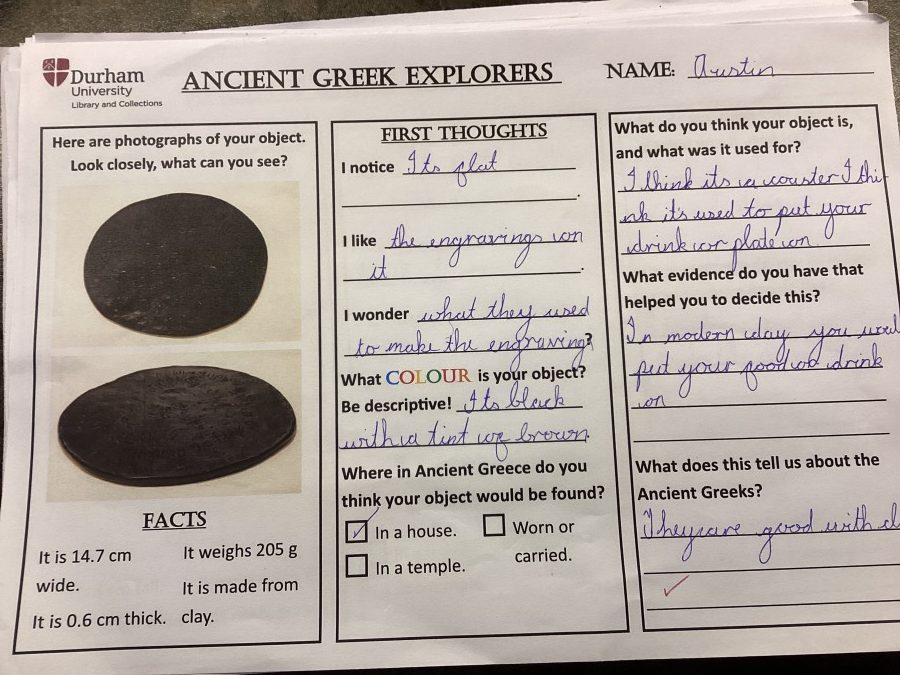 Durham
University
Library and Collections
ANCIENT GREEK EXPLORERS
NAME: Austin
Here are photographs of your object.
Look closely, what can you see?
FACTS
It is 14.7 cm
wide.
It is 0.6 cm thick.
It weighs 205 g
It is made from
clay.
FIRST THOUGHTS
I notice Its flat
.
I like the engravings on
it .
I wonder what they used
to make the engraving?
What COLOUR is your object?
Be descriptive! Its black
with a tint of brown.
Where in Ancient Greece do you
think your object would be found?
In a house.
Worn or
carried.
In a temple.
What do you think your object is,
and what was it used for?
I think its a couster I thi
nk it's used to put your
drink or plate on
What evidence do you have that
helped you to decide this?
In modern day you
put your food or drink
on
What does this tell us about the
Ancient Greeks?
They are good with